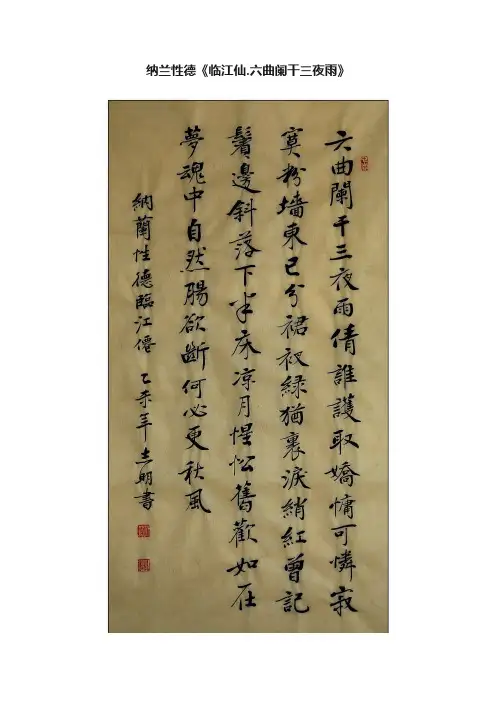 纳兰性德《临江仙.六曲阑干三夜雨》
六曲闌干三夜雨倩誰護取嬌慵可憐寂
寞粉墻東已分裙衩綠猶裹淚綃紅曾記
鬢邊斜落下半床涼月惺忪舊歡如在
夢魂中自然腸欲斷何必更秋風
納蘭性德臨江僊 乙未年志明書